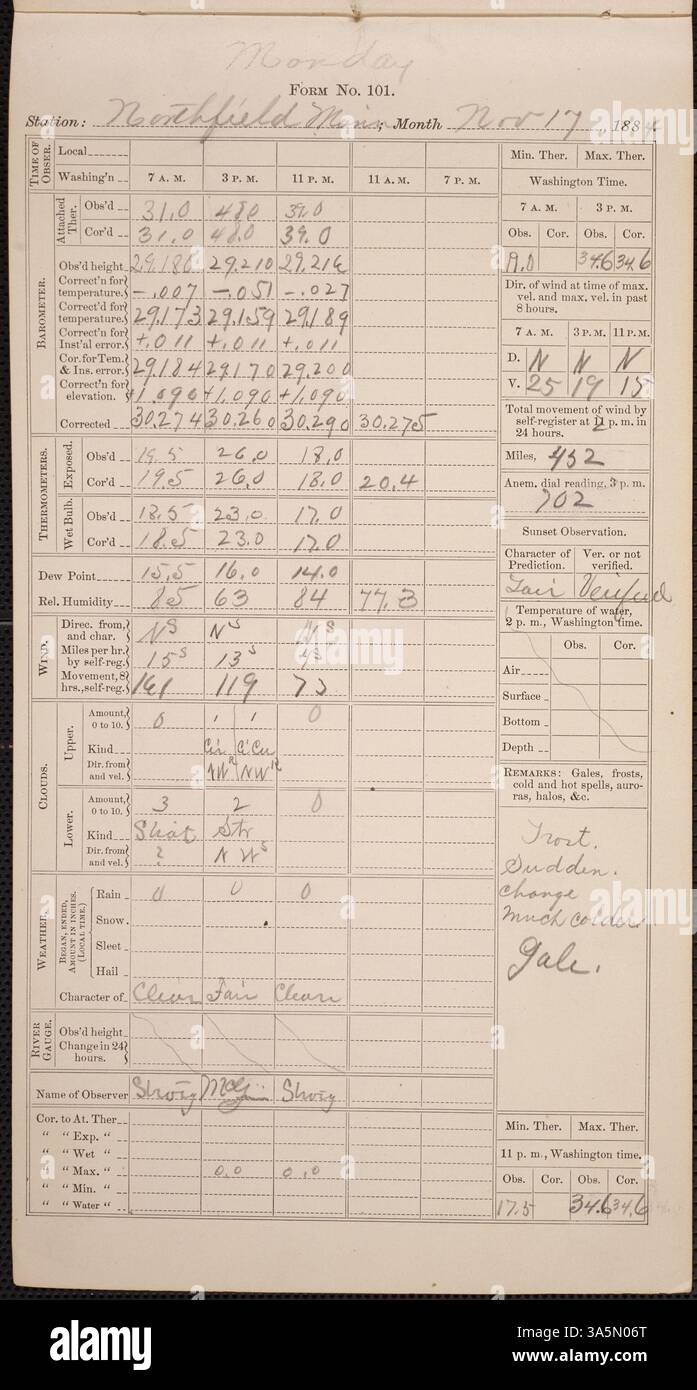 Monday
FORM No. 101.
Station: Northfield Minn; Month Nov 17, 1884.
TIME OF OBSER. Local
Washing'n 7 A. M. 3 P. M. 11 P. M. 11 A. M. 7 P. M.
BAROMETER.
Attached Ther.
Obs'd 31.0 48.0 39.0
Cor'd 31.0 48.0 39.0
Obs'd height 29.180 29.210 29.216
Correct'n for temperature. -.007 -.051 -.027
Correct'd for temperature. 29.173 29.159 29.189
Correct'n for Inst'al error. +.011 +.011 +.011
Cor. for Tem. & Ins. error. 29.184 29.170 29.200
Correct'n for elevation. +1.090 +1.090 +1.090
Corrected 30.274 30.260 30.290 30.275
THERMOMETERS.
Exposed.
Obs'd 19.5 26.0 18.0
Cor'd 19.5 26.0 18.0 20.4
Wet Bulb.
Obs'd 18.5 23.0 17.0
Cor'd 18.5 23.0 17.0
Dew Point 15.5 16.0 14.0
Rel. Humidity 85 63 84 77.3
WIND.
Direc. from, and char. N S N S N S
Miles per hr. by self-reg. 15 S 13 S
Movement, 8 hrs., self-reg. 161 119 73
CLOUDS.
Upper.
Amount, 0 to 10. 0 1 1 0
Kind Cir Ci Cu
Dir. from and vel. NW R NW R
Lower.
Amount, 0 to 10. 3 2 0
Kind Strat Str
Dir. from and vel. ? N W S
WEATHER.
BEGAN, ENDED, AMOUNT IN INCHES. (LOCAL TIME.)
Rain 0 0 0
Snow.
Sleet
Hail
Character of Clear Fair Clear
RIVER GAUGE.
Obs'd height
Change in 24 hours.
Name of Observer
Cor. to At. Ther.
" " Exp. "
" " Wet "
" " Max. " 0.0 0.0
" " Min. "
" " Water "
Min. Ther. Max. Ther.
Washington Time.
7 A. M. 3 P. M.
Obs. Cor. Obs. Cor.
34.6 34.6
Dir. of wind at time of max. vel. and max. vel. in past 8 hours.
7 A. M. 3 P. M. 11 P. M.
D. N N N
V. 25 19 15
Total movement of wind by self-register at 11 p. m. in 24 hours.
Miles, 452
Anem. dial reading, 3 p. m.
702
Sunset Observation.
Character of Prediction. Ver. or not verified.
Fair Verified
Temperature of water, 2 p. m., Washington time.
Obs. Cor.
Air
Surface
Bottom
Depth
REMARKS: Gales, frosts, cold and hot spells, auroras, halos, &c.
Frost.
Sudden.
change
much colder
Gale.
Min. Ther. Max. Ther.
11 p. m., Washington time.
Obs. Cor. Obs. Cor.
17.5 34.6 34.6
alamy
Image ID: 3A5N06T
www.alamy.com